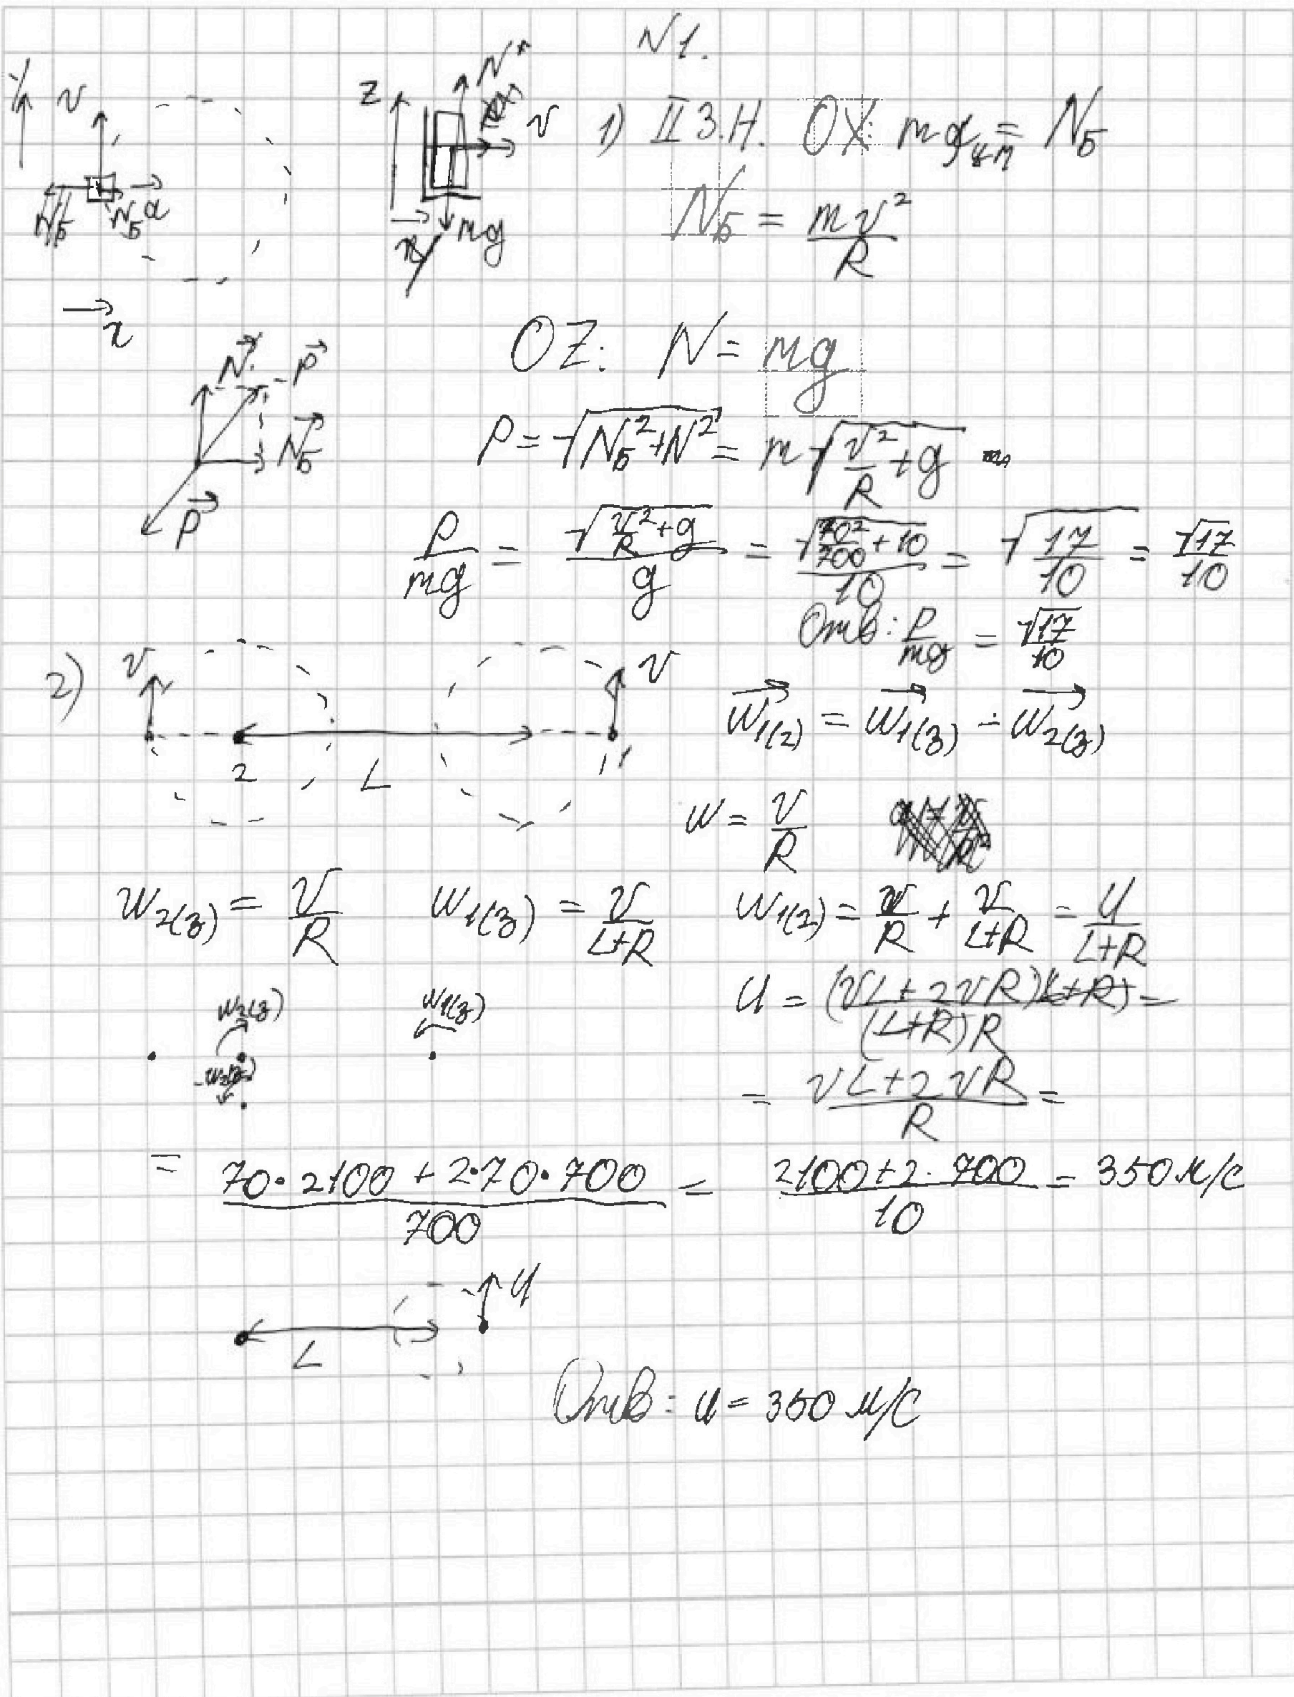 N1.
Y v
N_Б N_Б a
x
z N v
x mg
1) II З.Н. OX: ma_{цп} = N_Б
N_Б = mv²/R
OZ: N = mg
N P
N_Б
P
P = √(N_Б² + N²) = m√(v²/R + g)
P/mg = √(v²/R + g)/g = √(70²/700 + 10)/10 = √(17/10) = √17/10
Отв: P/mg = √17/10
2) v v
2 L 1
w_{1(2)} = w_{1(з)} - w_{2(з)}
w = v/R
w_{2(з)} = v/R w_{1(з)} = v/(L+R) w_{1(2)} = v/R + v/(L+R) = u/(L+R)
w_{2(з)} w_{1(з)}
-w_{2(з)}
u = (vL + 2vR)(L+R)/((L+R)R) =
= (vL + 2vR)/R =
= (70·2100 + 2·70·700)/700 = (2100 + 2·700)/10 = 350 м/с
L u
Отв: u = 350 м/с